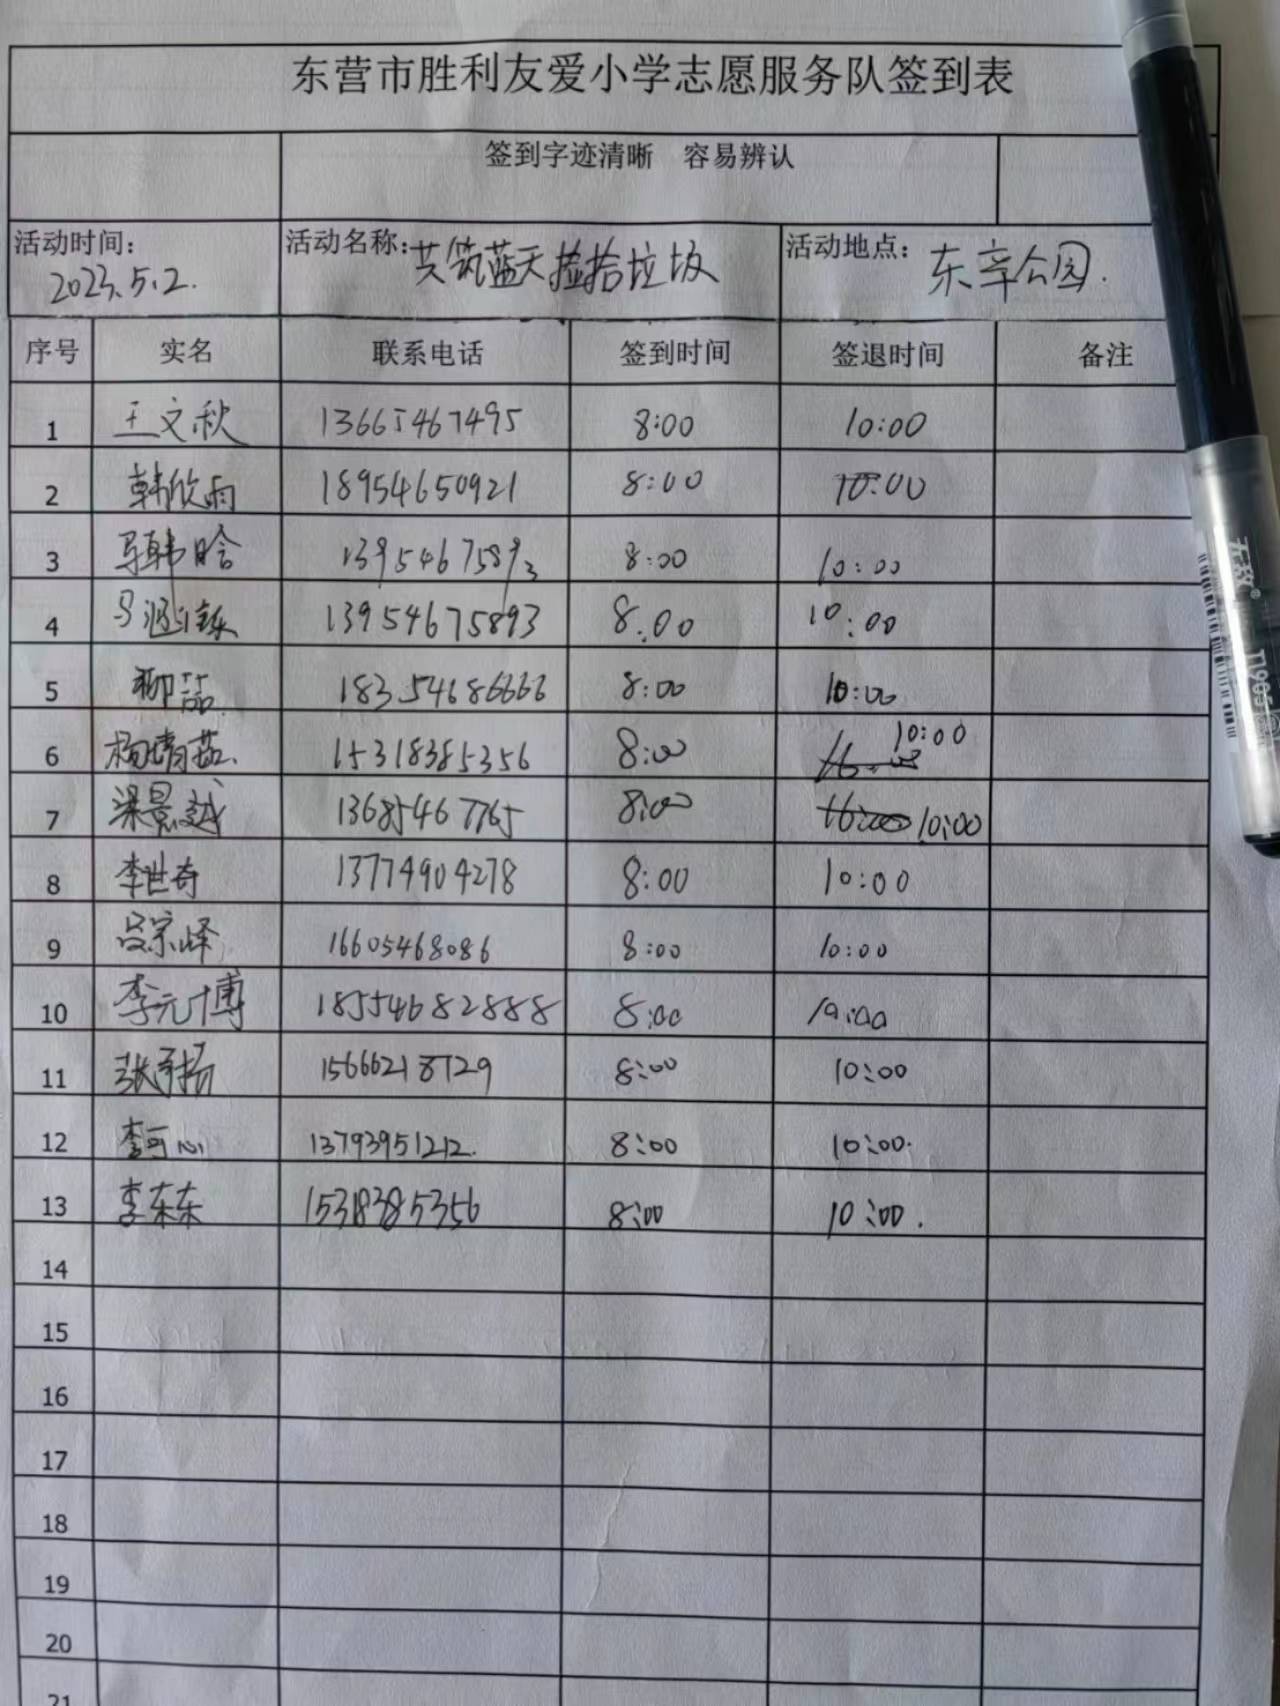 东营市胜利友爱小学志愿服务队签到表
签到字迹清晰 容易辨认
活动时间: 2023.5.2. 活动名称: 共筑蓝天捡拾垃圾 活动地点: 东辛公园.
序号 实名 联系电话 签到时间 签退时间 备注
1 王文秋 13665467495 8:00 10:00
2 韩欣雨 18954650921 8:00 10:00
3 马韩晗 13954675893 8:00 10:00
4 马 13954675893 8:00 10:00
5 柳喆 18354686666 8:00 10:00
6 杨靖茹. 15318385356 8:00 10:00
7 梁景越 13685467765 8:00 10:00
8 李世奇 13774904278 8:00 10:00
9 吕宗峄 16605468086 8:00 10:00
10 李元博 18554682888 8:00 10:00
11 张 扬 15666218729 8:00 10:00
12 李可心 13793951212. 8:00 10:00.
13 李东东 15318385356 8:00 10:00.
14
15
16
17
18
19
20
21